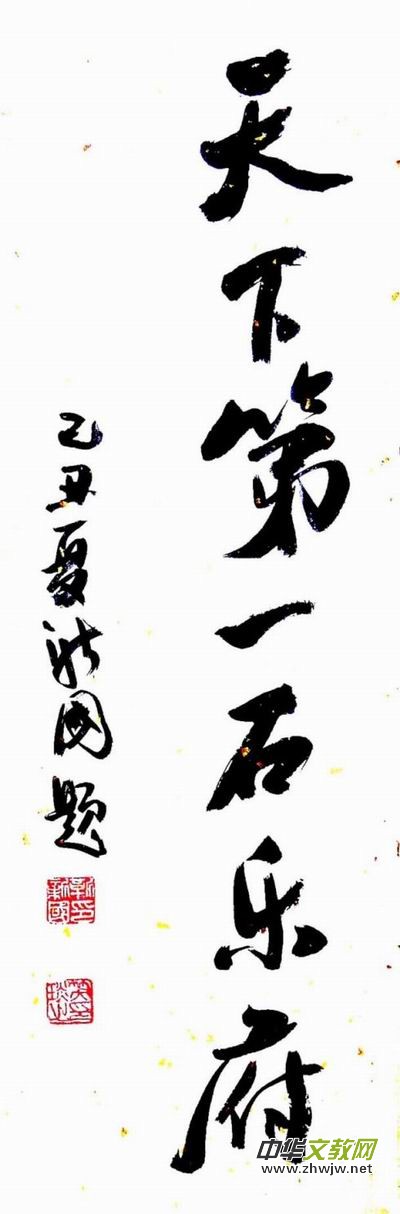 天下第一石乐府
己丑夏新国题
中华文教网
www.zhwjw.net